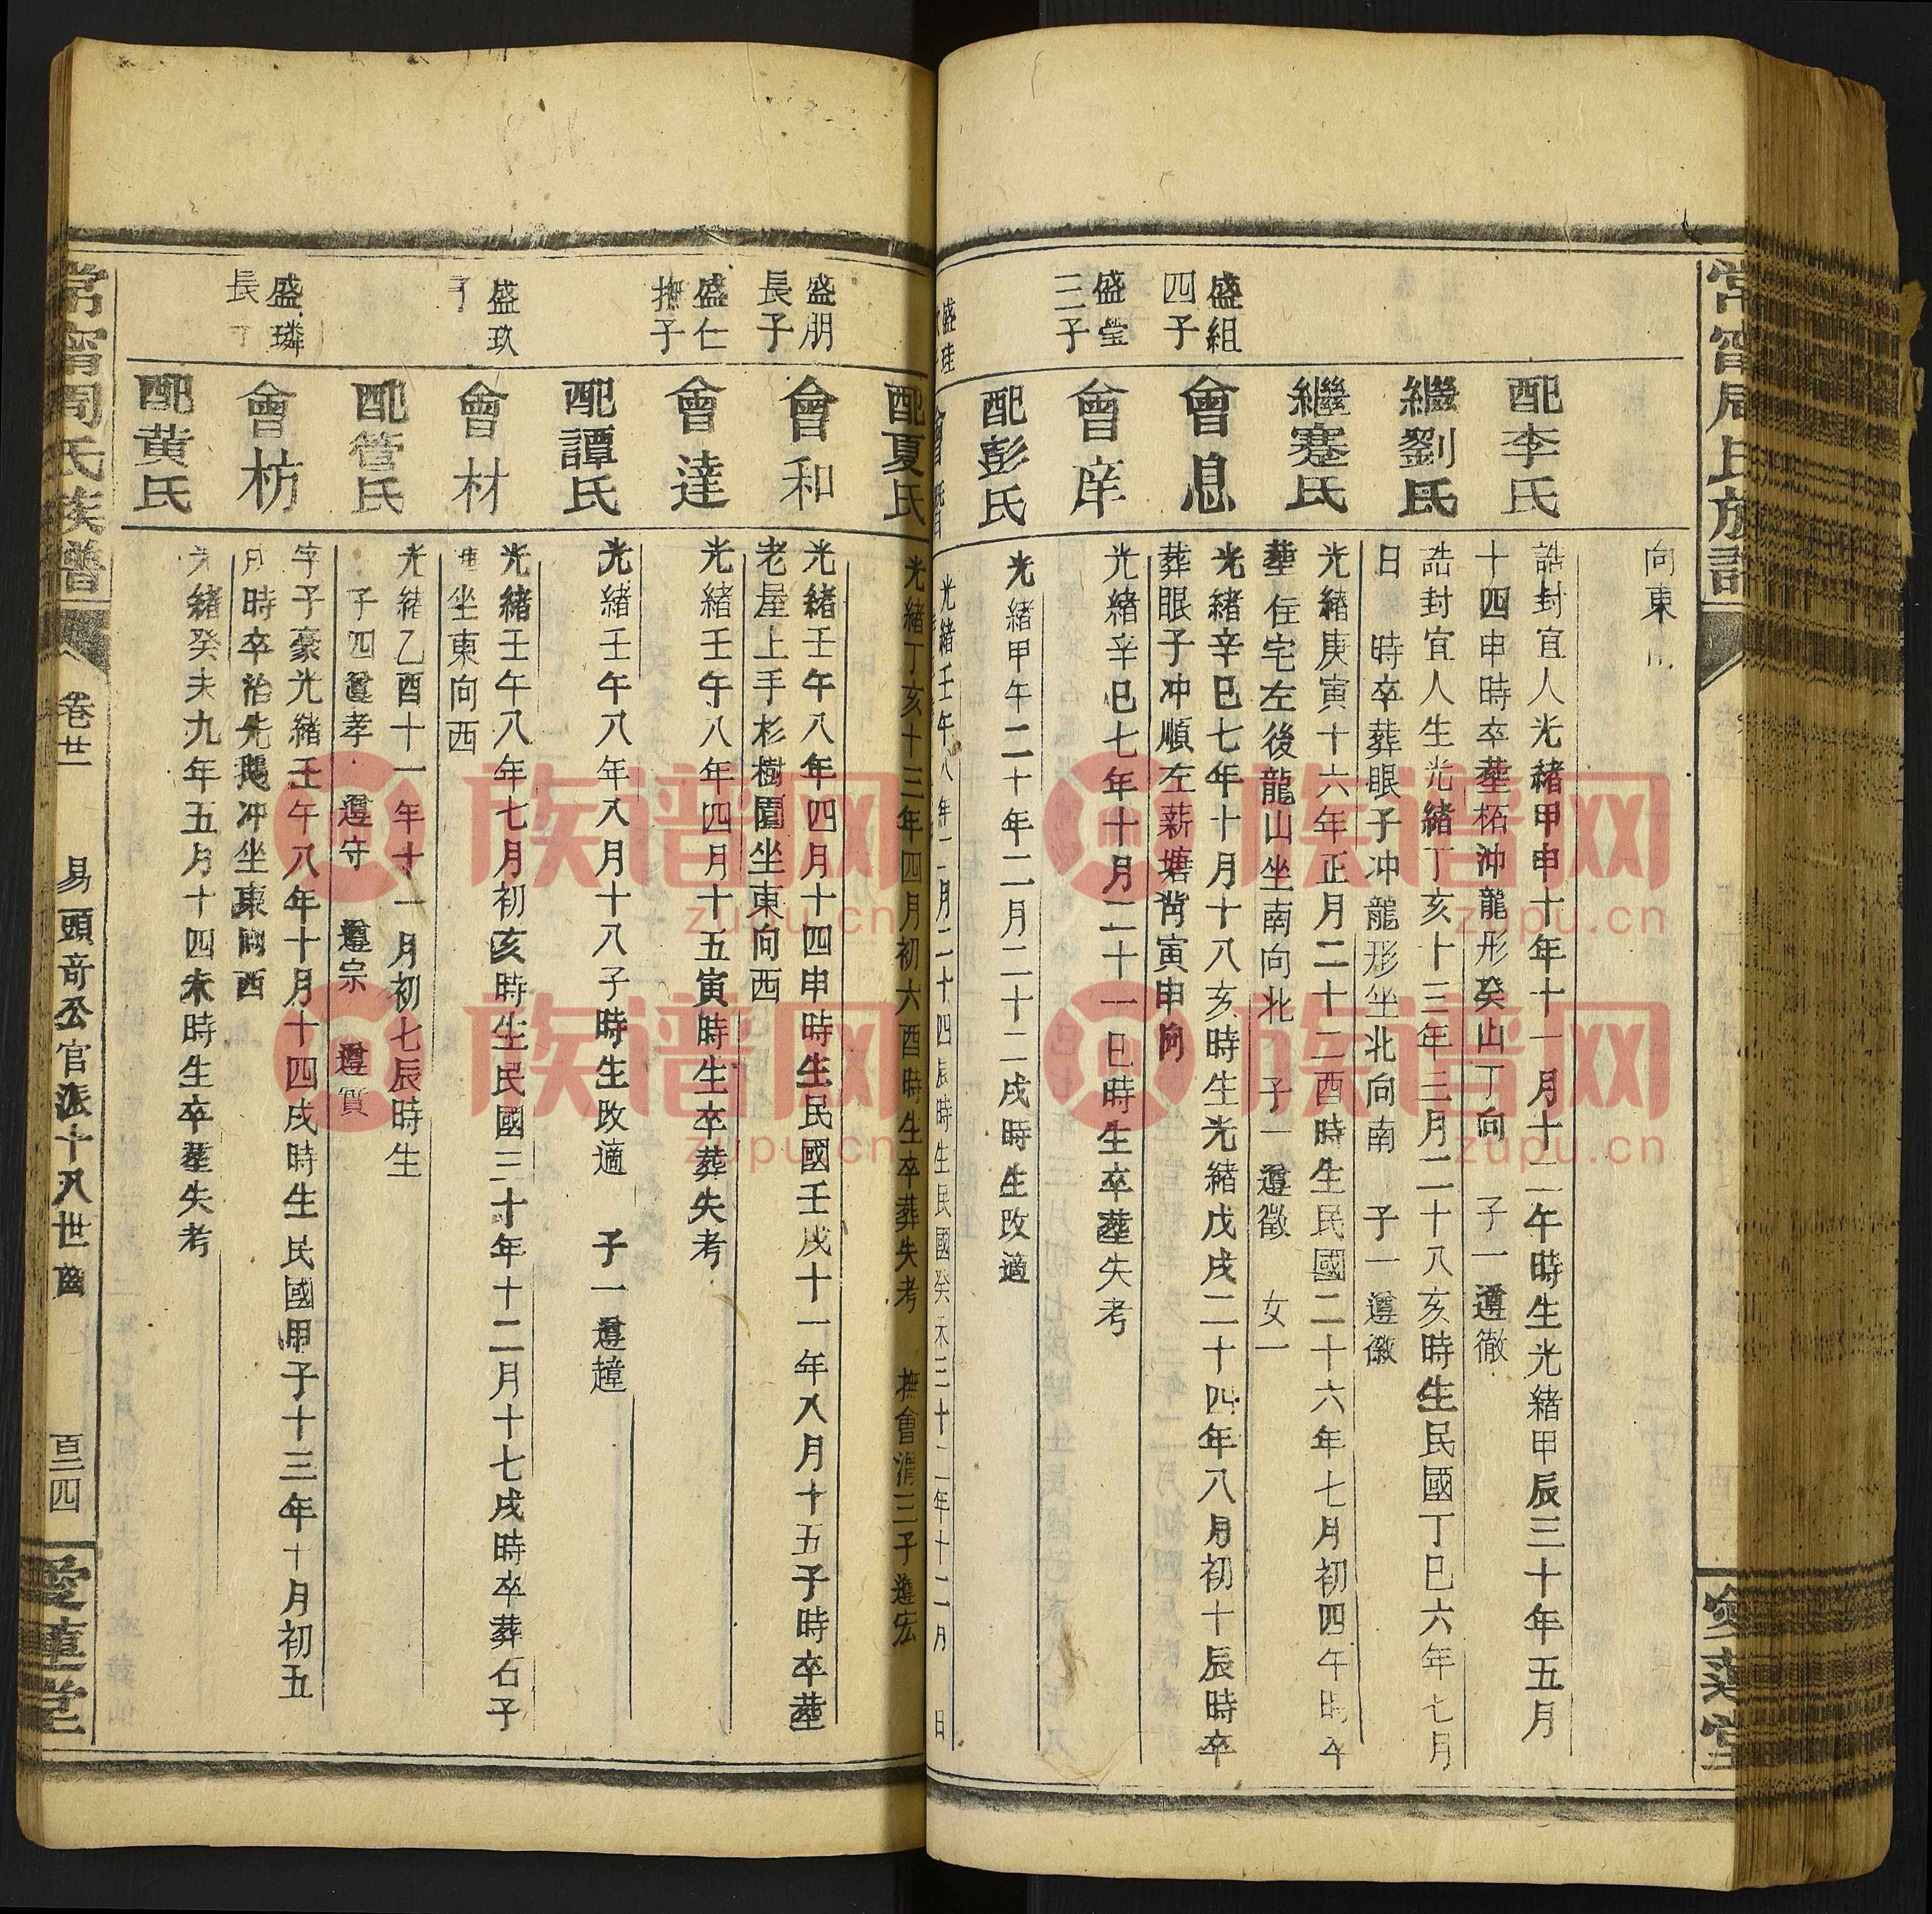 常甯周氏族譜
愛蓮堂
向東
配李氏
誥封宜人光緒甲申十年十一月十二午時生光緒甲辰三十年五月
十四申時卒塟柘沖龍形癸山丁向 子一 遵徹
繼劉氏
誥封宜人生光緒丁亥十三年三月二十八亥時生民國丁巳六年七月
日 時卒葬眼子冲龍形坐北向南 子一 遵徽
繼蹇氏
光緒庚寅十六年正月二十二酉時生民國二十六年七月初四午時卒
塟住宅左後龍山坐南向北 子一 遵徵 女一
盛組
四子
會息
光緒辛巳七年十月十八亥時生光緒戊戌二十四年八月初十辰時卒
葬眼子冲順左薪塘背寅申向
盛瑩
三子
會庠
光緒辛巳七年十月二十一巳時生卒塟失考
配彭氏
光緒甲午二十年二月二十二戌時生改適
盛珪
光緒壬午八年二月二十四辰時生民國癸未三十二年十二月 日
配夏氏
光緒丁亥十三年四月初六酉時生卒葬失考 撫會渭三子遵宏
盛朋
長子
會和
光緒壬午八年四月十四申時生民國壬戌十一年八月十五子時卒塟
老屋上手杉樹園坐東向西
盛仁
撫子
會達
光緒壬午八年四月十五寅時生卒葬失考
配譚氏
光緒壬午八年八月十八子時生改適 子一 遵
盛玖
子
會材
光緒壬午八年七月初亥時生民國三十年十二月十七戌時卒葬石子
坐東向西
配管氏
光緒乙酉十一年十一月初七辰時生
子四 遵孝 遵守 遵宗 遵質
盛璘
長
會枋
字子豪光緒壬午八年十月十四戌時生民國甲子十三年十月初五
時卒冶先冲坐東向西
配黃氏
光緒癸未九年五月十四未時生卒塟失考
常甯周氏族譜
卷廿二
易頭奇公官派十八世齒
百三四
愛蓮堂
族谱网
zupu.cn
族谱网
zupu.cn
族谱网
zupu.cn
族谱网
zupu.cn